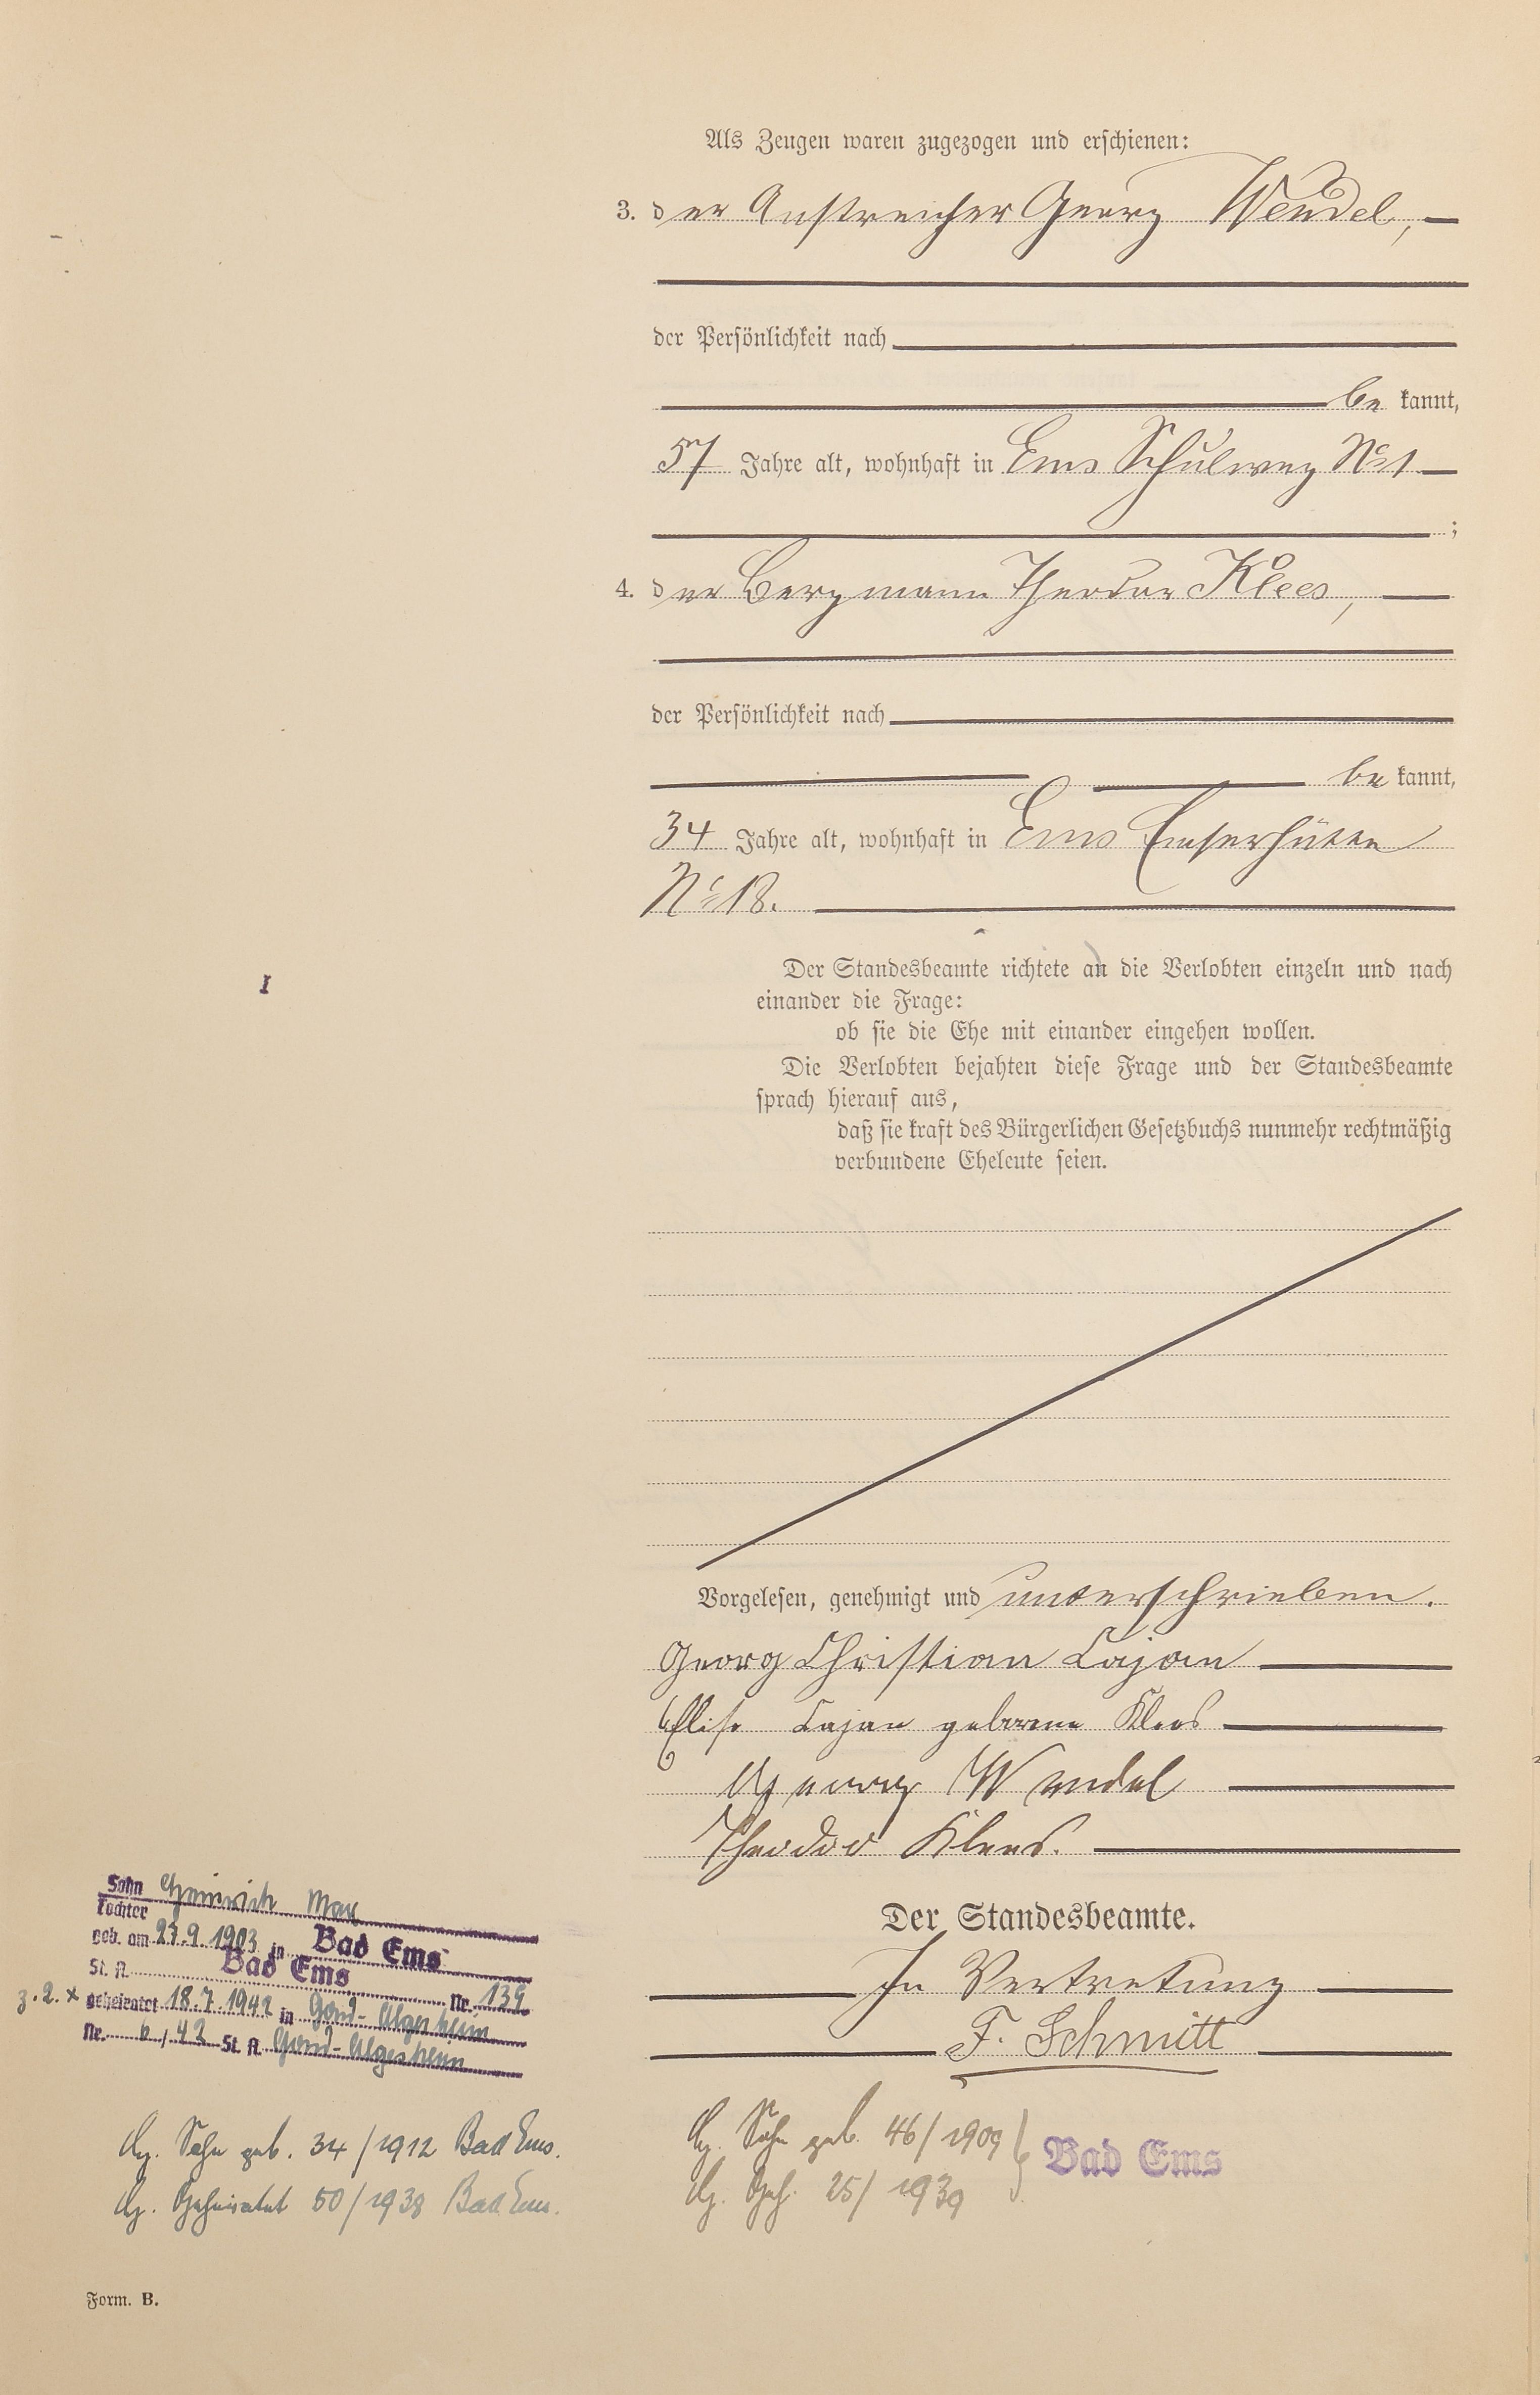 Als Zeugen waren zugezogen und erschienen:
3. der Anstreicher Georg Wendel,
der Persönlichkeit nach
be kannt,
57 Jahre alt, wohnhaft in Ems Schulweg No 1
;
4. der Bergmann Theodor Klees,
der Persönlichkeit nach
be kannt,
34 Jahre alt, wohnhaft in Ems Emserhütte
No 18.
I
Der Standesbeamte richtete an die Verlobten einzeln und nach
einander die Frage:
ob sie die Ehe mit einander eingehen wollen.
Die Verlobten bejahten diese Frage und der Standesbeamte
sprach hierauf aus,
daß sie kraft des Bürgerlichen Gesetzbuchs nunmehr rechtmäßig
verbundene Eheleute seien.
Vorgelesen, genehmigt und unterschrieben.
Georg Christian Cajan
Elise Cajan geborene Klees
Georg Wendel
Theodor Klees.
Der Standesbeamte.
In Vertretung
F. Schmitt
Sohn Heinrich Max
Tochter
geb. am 27.9.1903 in Bad Ems
St. A. Bad Ems Nr. 139
3.2. x geheiratet 18.7.1942 in Gond-Algesheim
Nr. 6/42 St. A. Gond-Algesheim
Sohn geb. 34/1912 Bad Ems.
Geheiratet 50/1938 Bad Ems.
Sohn geb. 46/1909 } Bad Ems
Geh. 25/1939
Form. B.